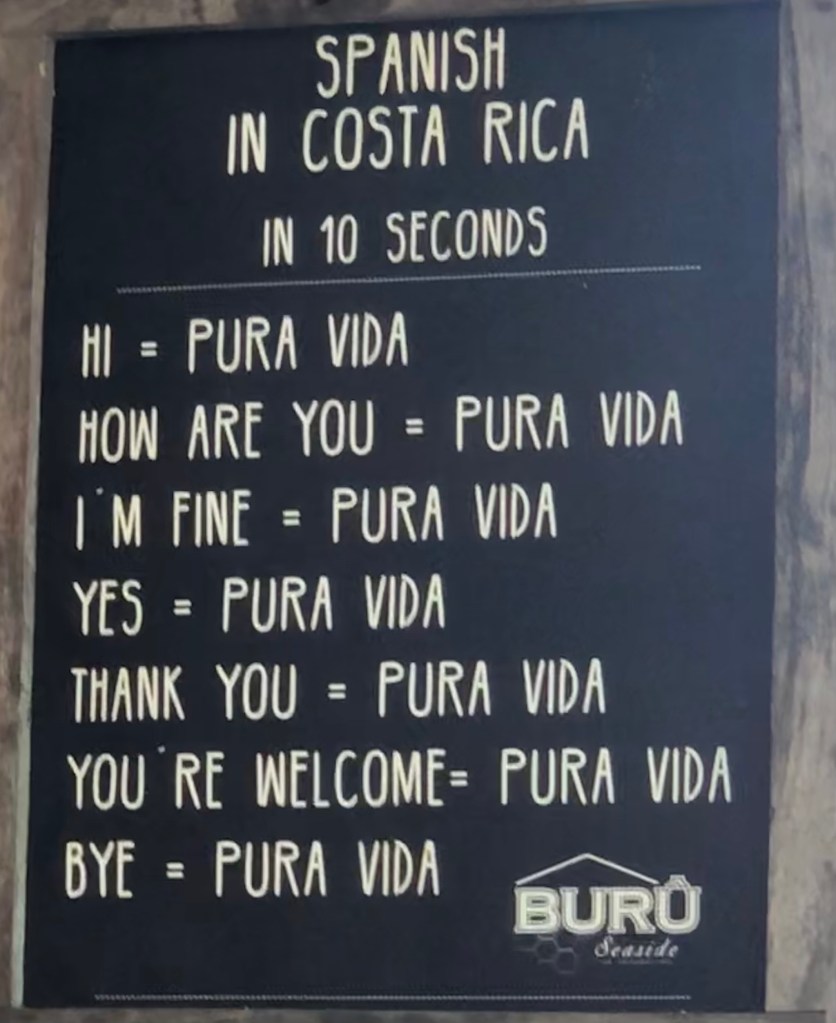 SPANISH
IN COSTA RICA
IN 10 SECONDS
HI = PURA VIDA
HOW ARE YOU = PURA VIDA
I´M FINE = PURA VIDA
YES = PURA VIDA
THANK YOU = PURA VIDA
YOU´RE WELCOME= PURA VIDA
BYE = PURA VIDA
BURÛ
Seaside